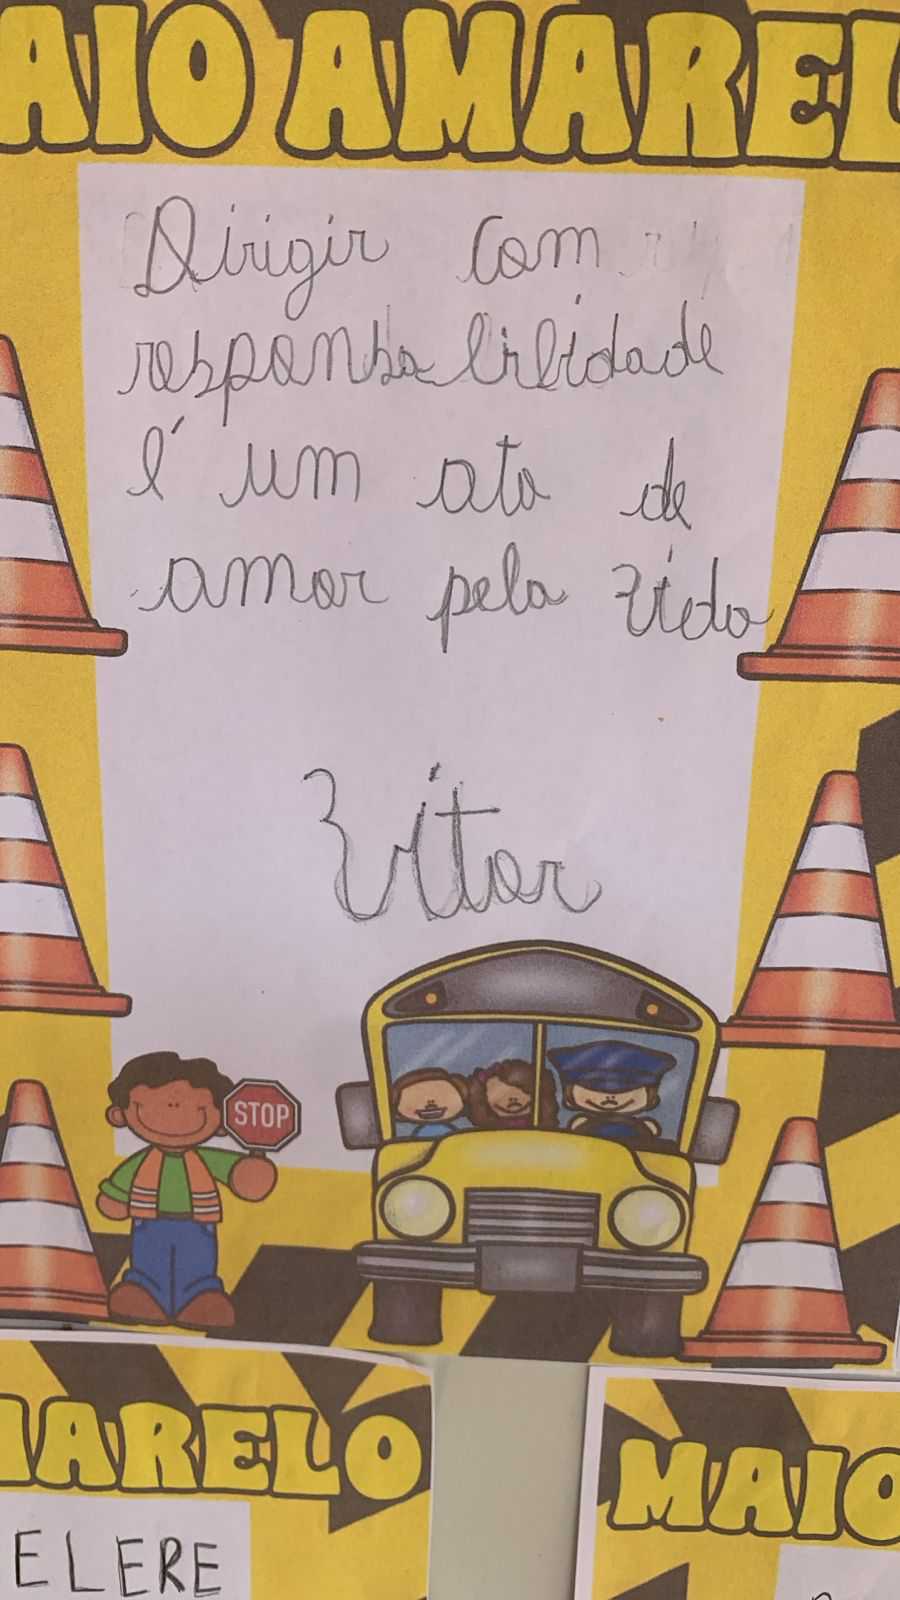 AIO AMAREL
Dirigir com
responsabilidade
é um ato de
amor pela vida
Vitor
STOP
ARELO
ELERE
MAIO